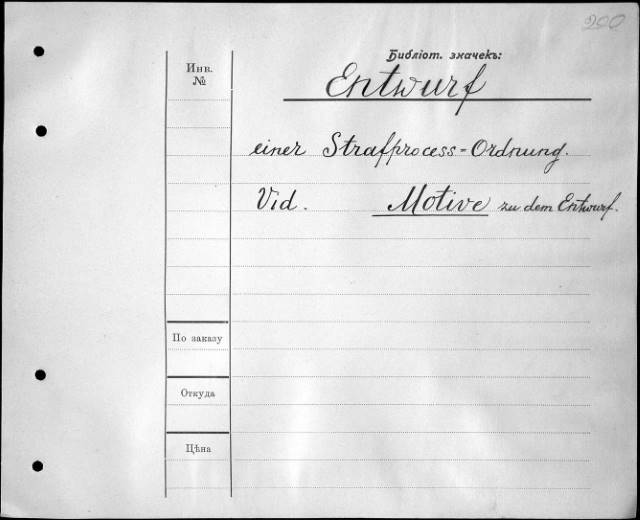 200
Библіот. значекъ:
Инв.
№
Entwurf
einer Strafprocess-Ordnung.
Vid. Motive zu dem Entwurf.
По заказу
Откуда
Цѣна